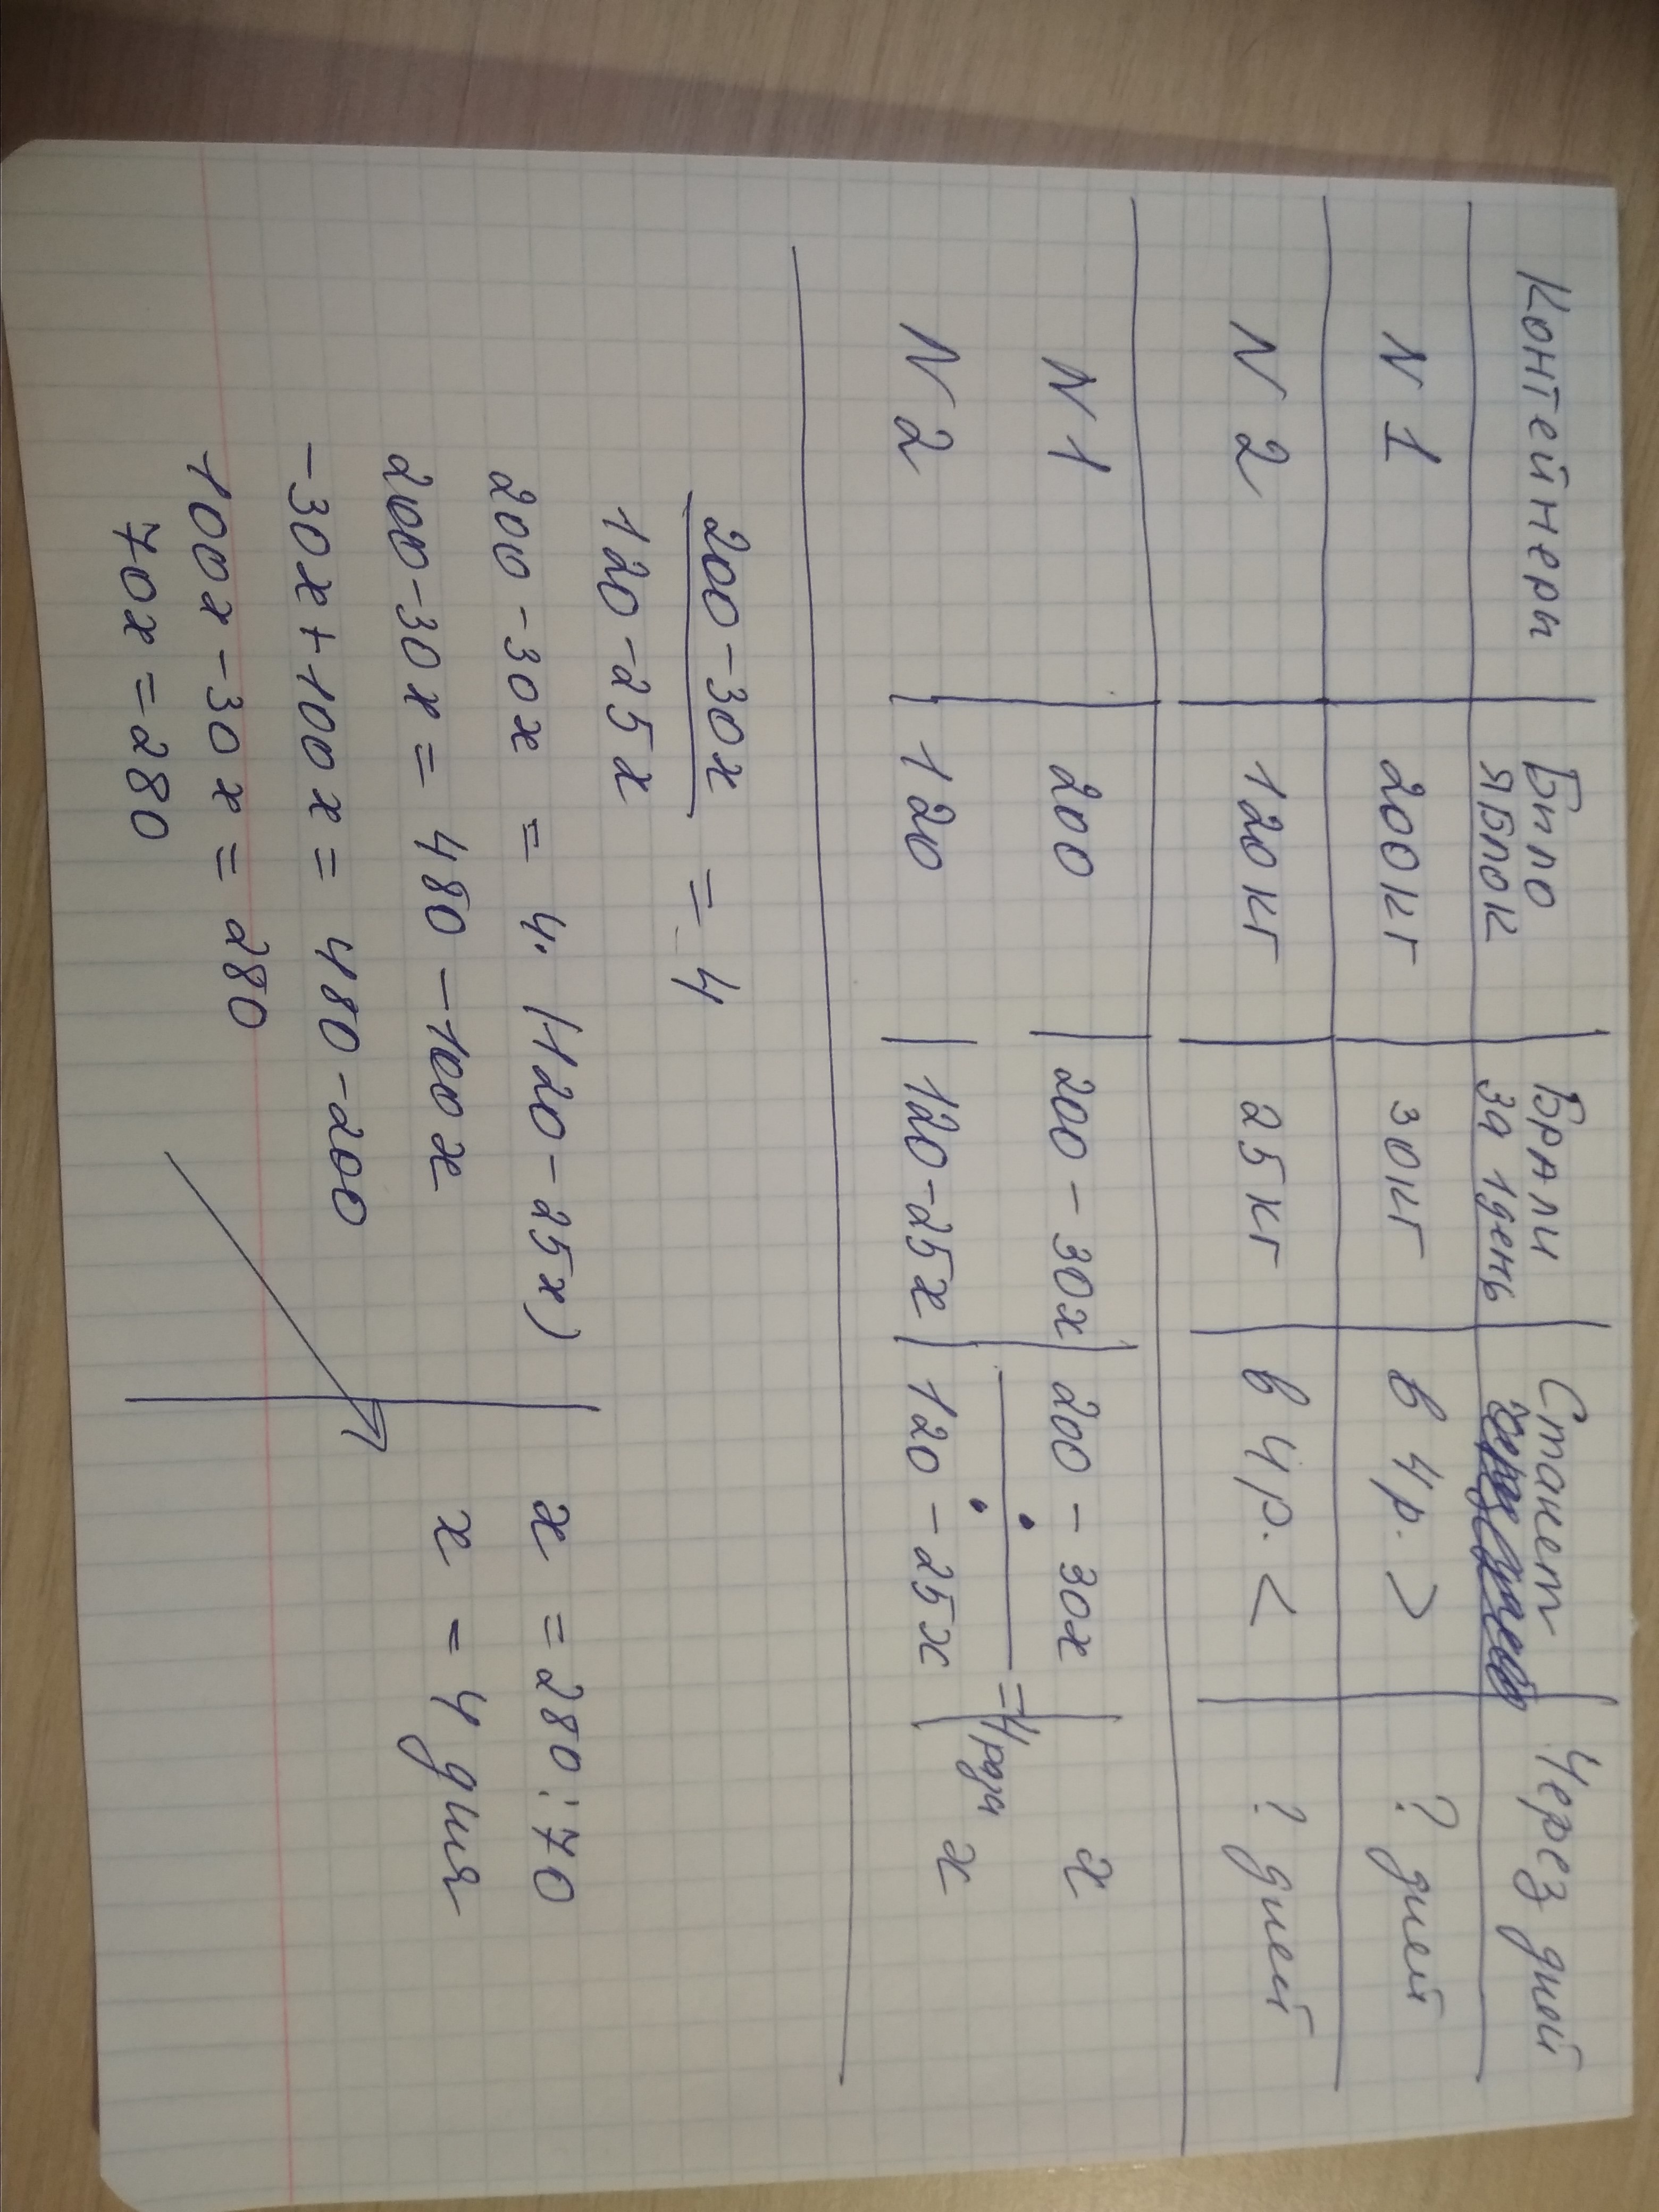 Контейнеры Было Брали Станет Через дней
яблок за 1день
N 1 200кг 30кг в 4р. > ? дней
N 2 120кг 25кг в 4р. < ? дней
N 1 200 200 - 30x 200 - 30x x
= 4 раза
N 2 120 120-25x 120 - 25x x
200-30x
= 4
120-25x
200 - 30x = 4·(120 - 25x)
200-30x = 480 - 100x
-30x+100x = 480-200
100x-30x = 280
70x = 280
x = 280:70
x = 4 дня